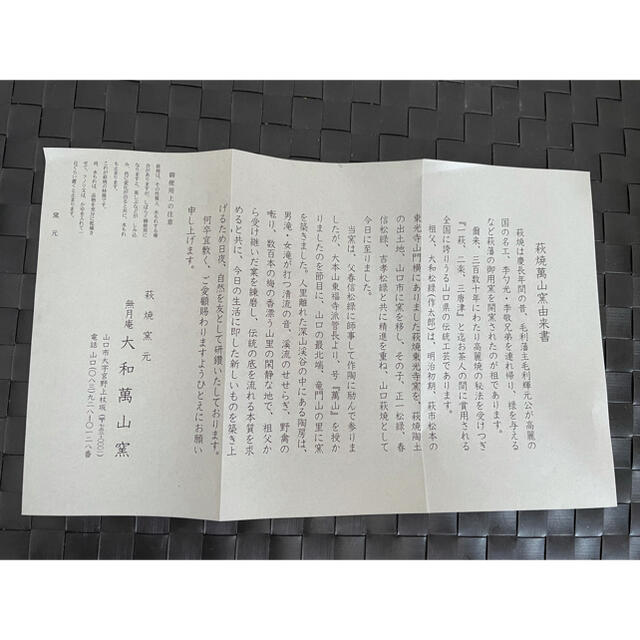 萩焼萬山窯由来書
萩焼は慶長年間の昔、毛利藩主毛利輝元公が高麗の
国の名工、李勺光・李敬兄弟を連れ帰り、様を与える
など萩藩の御用窯を開窯されたのが祖であります。
爾来、三百数十年にわたり高麗焼の秘法を受けつぎ
『一萩、二楽、三唐津』と迄お茶人の間に賞用される
全国に誇りうる山口県の伝統工芸であります。
祖父、大和松緑(作太郎)は、明治初期、萩市松本の
東光寺山門横にありました萩焼東光寺窯を、萩焼陶土
の出土地、山口市に窯を移し、その子、正一松緑、春
信松緑、吉孝松緑と共に精進を重ね、山口萩焼として
今日に至りました。
当窯は、父春信松緑に師事して作陶に励んで参りま
したが、大本山東福寺派管長より、号『萬山』を授か
りましたのを節目に、山口の最北端、竜門山の里に窯
を築きました。人里離れた深山渓谷の中にある陶房は、
男滝・女滝が打つ清流の音、渓流のせせらぎ、野禽の
囀り、数百本の梅の香漂う山里の閑静な地で、祖父か
ら受け継いだ業を練磨し、伝統の底を流れる本質を求
めると共に、今日の生活に即した新しいものを築き上
げるため日夜、自然を友として研鑽いたしております。
何卒宜敷く、ご愛顧賜わりますようひとえにお願い
申し上げます。
萩焼窯元
無月庵 大和萬山窯
山口市大字宮野上杖坂
電話 山口(〇八三)九二八-〇一二八番
御使用上の注意
窯元